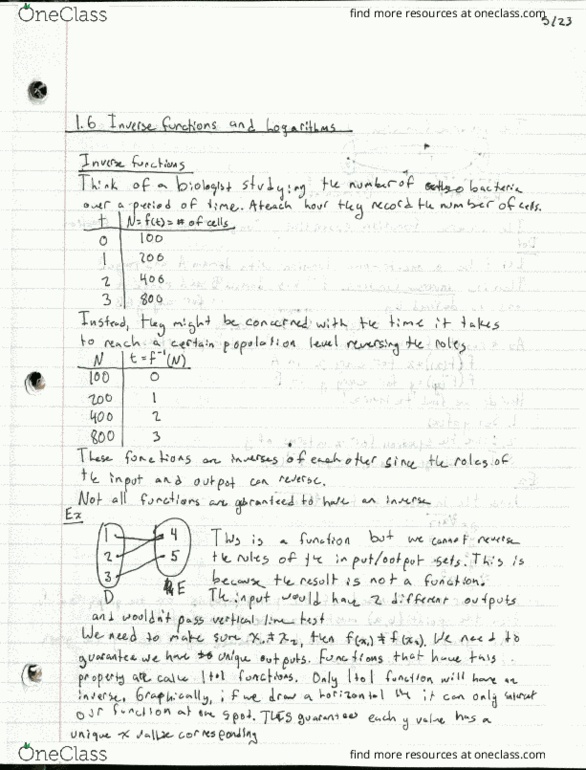 OneClass
find more resources at oneclass.com
3/23
1.6 Inverse functions and Logarithms
Inverse functions
Think of a biologist studying the number of bacteria
over a period of time. At each hour they record the number of cells.
t | N=f(t)=# of cells
0 | 100
1 | 200
2 | 400
3 | 800
Instead, they might be concerned with the time it takes
to reach a certain popolation level reversing the roles
N | t=f⁻¹(N)
100 | 0
200 | 1
400 | 2
800 | 3
These functions are inverses of each other since the roles of
the input and output can reverse.
Not all functions are garanteed to have an inverse
Ex
1 4
2 5
3
D E
This is a function but we cannot reverse
the rules of the input/output sets. This is
because the result is not a function.
The input would have 2 different outputs
and wouldn't pass vertical line test
We need to make sure x₁ ≠ x₂, then f(x₁) ≠ f(x₂). We need to
guarantee we have unique outputs. Functions that have this
property are calle 1to1 functions. Only 1to1 function will have an
inverse. Graphically, if we draw a horizontal line it can only intersect
our function at one spot. This guarantees each y value has a
unique x value corresponding
OneClass
find more resources at oneclass.com